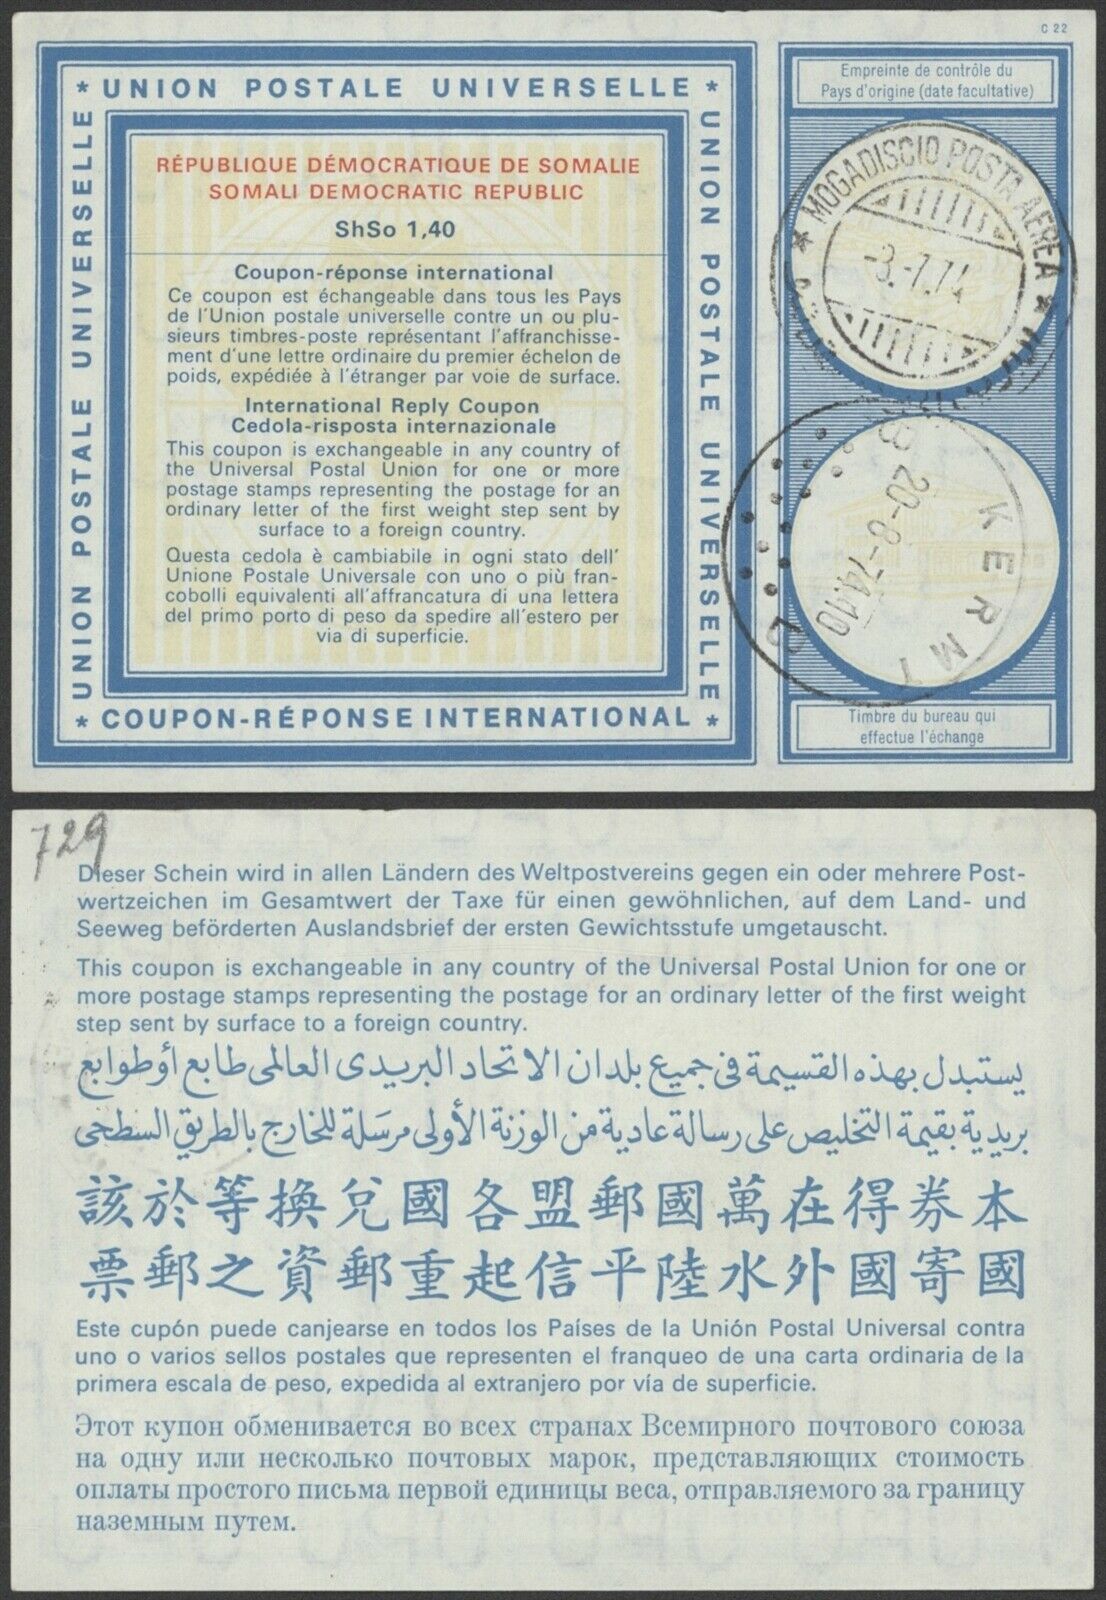 C 22
* UNION POSTALE UNIVERSELLE *
UNION POSTALE UNIVERSELLE
UNION POSTALE UNIVERSELLE
RÉPUBLIQUE DÉMOCRATIQUE DE SOMALIE
SOMALI DEMOCRATIC REPUBLIC
ShSo 1,40
Coupon-réponse international
Ce coupon est échangeable dans tous les Pays
de l'Union postale universelle contre un ou plu-
sieurs timbres-poste représentant l'affranchisse-
ment d'une lettre ordinaire du premier échelon de
poids, expédiée à l'étranger par voie de surface.
International Reply Coupon
Cedola-risposta internazionale
This coupon is exchangeable in any country of
the Universal Postal Union for one or more
postage stamps representing the postage for an
ordinary letter of the first weight step sent by
surface to a foreign country.
Questa cedola è cambiabile in ogni stato dell'
Unione Postale Universale con uno o più fran-
cobolli equivalenti all'affrancatura di una lettera
del primo porto di peso da spedire all'estero per
via di superficie.
* COUPON-RÉPONSE INTERNATIONAL *
Empreinte de contrôle du
Pays d'origine (date facultative)
* MOGADISCIO POSTA AEREA *
-8.-7.74
KERMT
20-8-74.10
Timbre du bureau qui
effectue l'échange
729
Dieser Schein wird in allen Ländern des Weltpostvereins gegen ein oder mehrere Post-
wertzeichen im Gesamtwert der Taxe für einen gewöhnlichen, auf dem Land- und
Seeweg beförderten Auslandsbrief der ersten Gewichtsstufe umgetauscht.
This coupon is exchangeable in any country of the Universal Postal Union for one or
more postage stamps representing the postage for an ordinary letter of the first weight
step sent by surface to a foreign country.
يستبدل بهذه القسيمة في جميع بلدان الاتحاد البريدى العالمى طابع أو طوابع
بريدية بقيمة التخليص على رسالة عادية من الوزنة الأولى مرسلة للخارج بالطريق السطحى
本券得在萬國郵盟各國兌換等於該
國寄國外水陸平信起重郵資之郵票
Este cupón puede canjearse en todos los Países de la Unión Postal Universal contra
uno o varios sellos postales que representen el franqueo de una carta ordinaria de la
primera escala de peso, expedida al extranjero por vía de superficie.
Этот купон обменивается во всех странах Всемирного почтового союза
на одну или несколько почтовых марок, представляющих стоимость
оплаты простого письма первой единицы веса, отправляемого за границу
наземным путем.